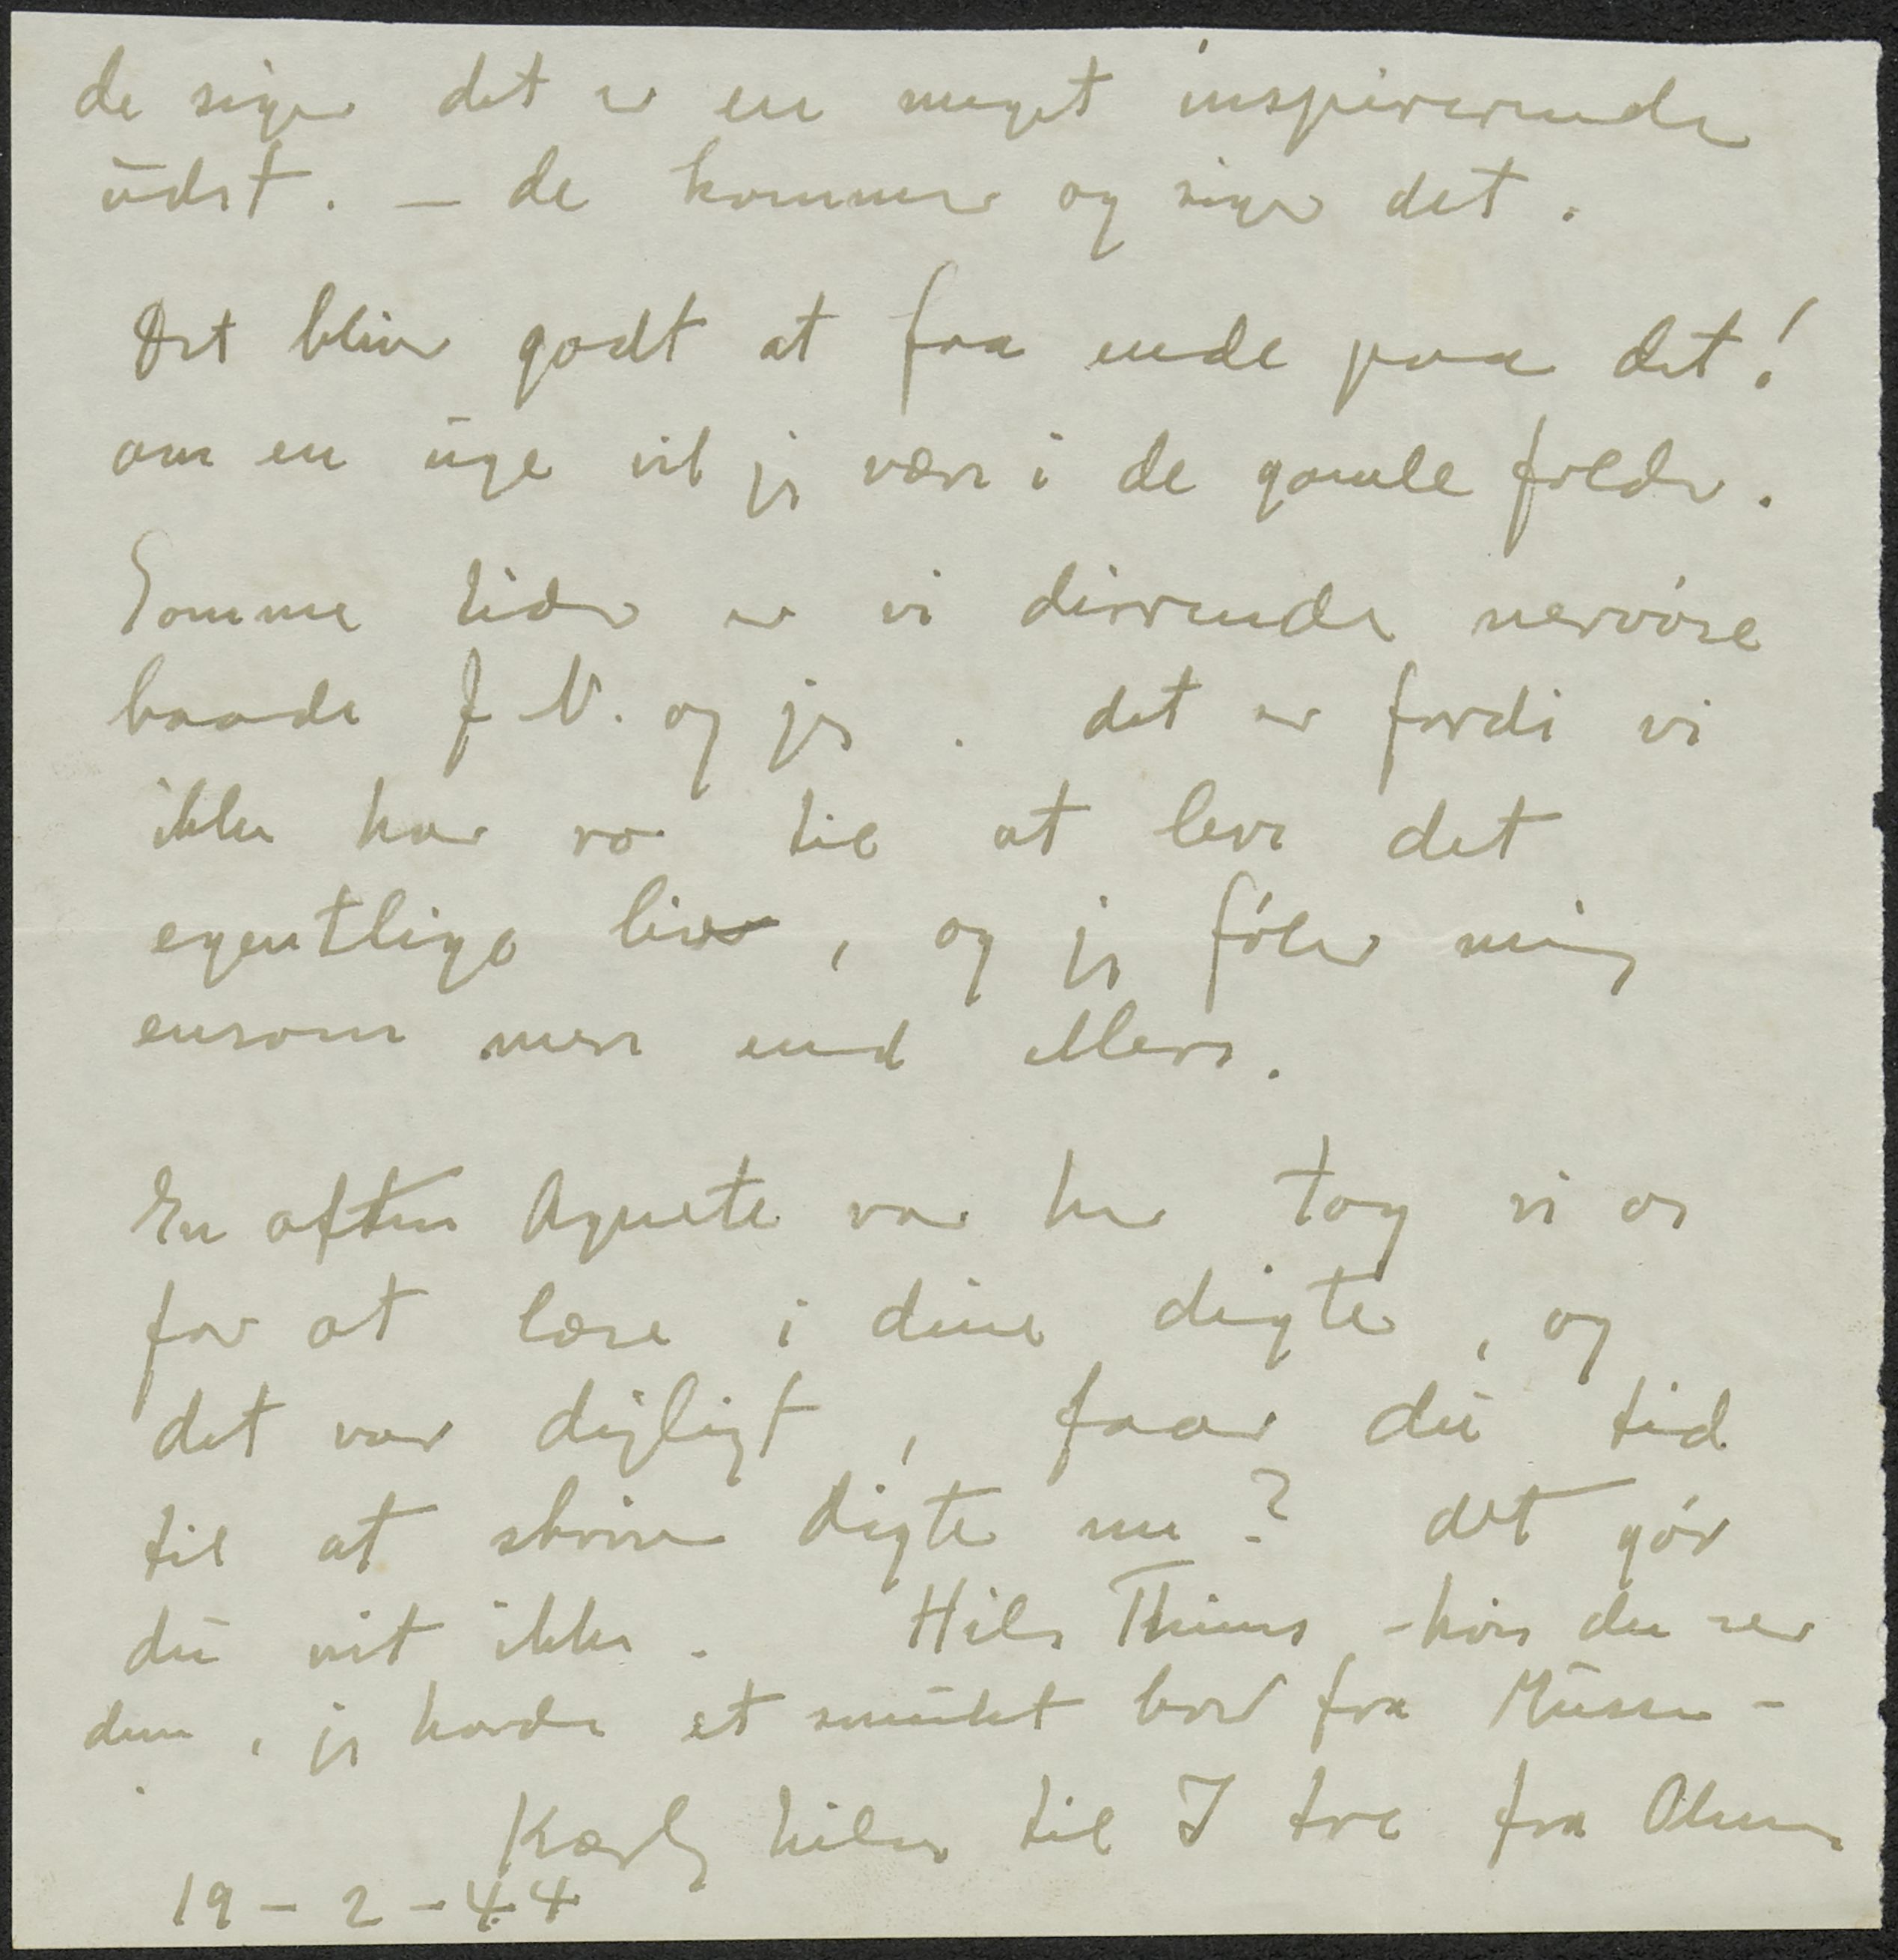 de siger det er en meget inspirerende
udst. – de kommer og siger det.
Det bliver godt at faa ende paa det!
om en uge vil jeg være i de gamle folder.
Somme tider er vi dirrende nervöse
baade J N. og jeg. det er fordi vi
ikke har ro til at leve det
egentlige liv, og jeg föler mig
ensom mere end ellers.
En aften Agnete var her tog vi os
for at læse i dine digte, og
det var dejligt, faar du tid
til at skrive digte nu? det gör
du vist ikke. Hils -hvis du ser
dem, jeg havde et smukt brev fra
Kærlig hilsen til I tre fra
19-2-44